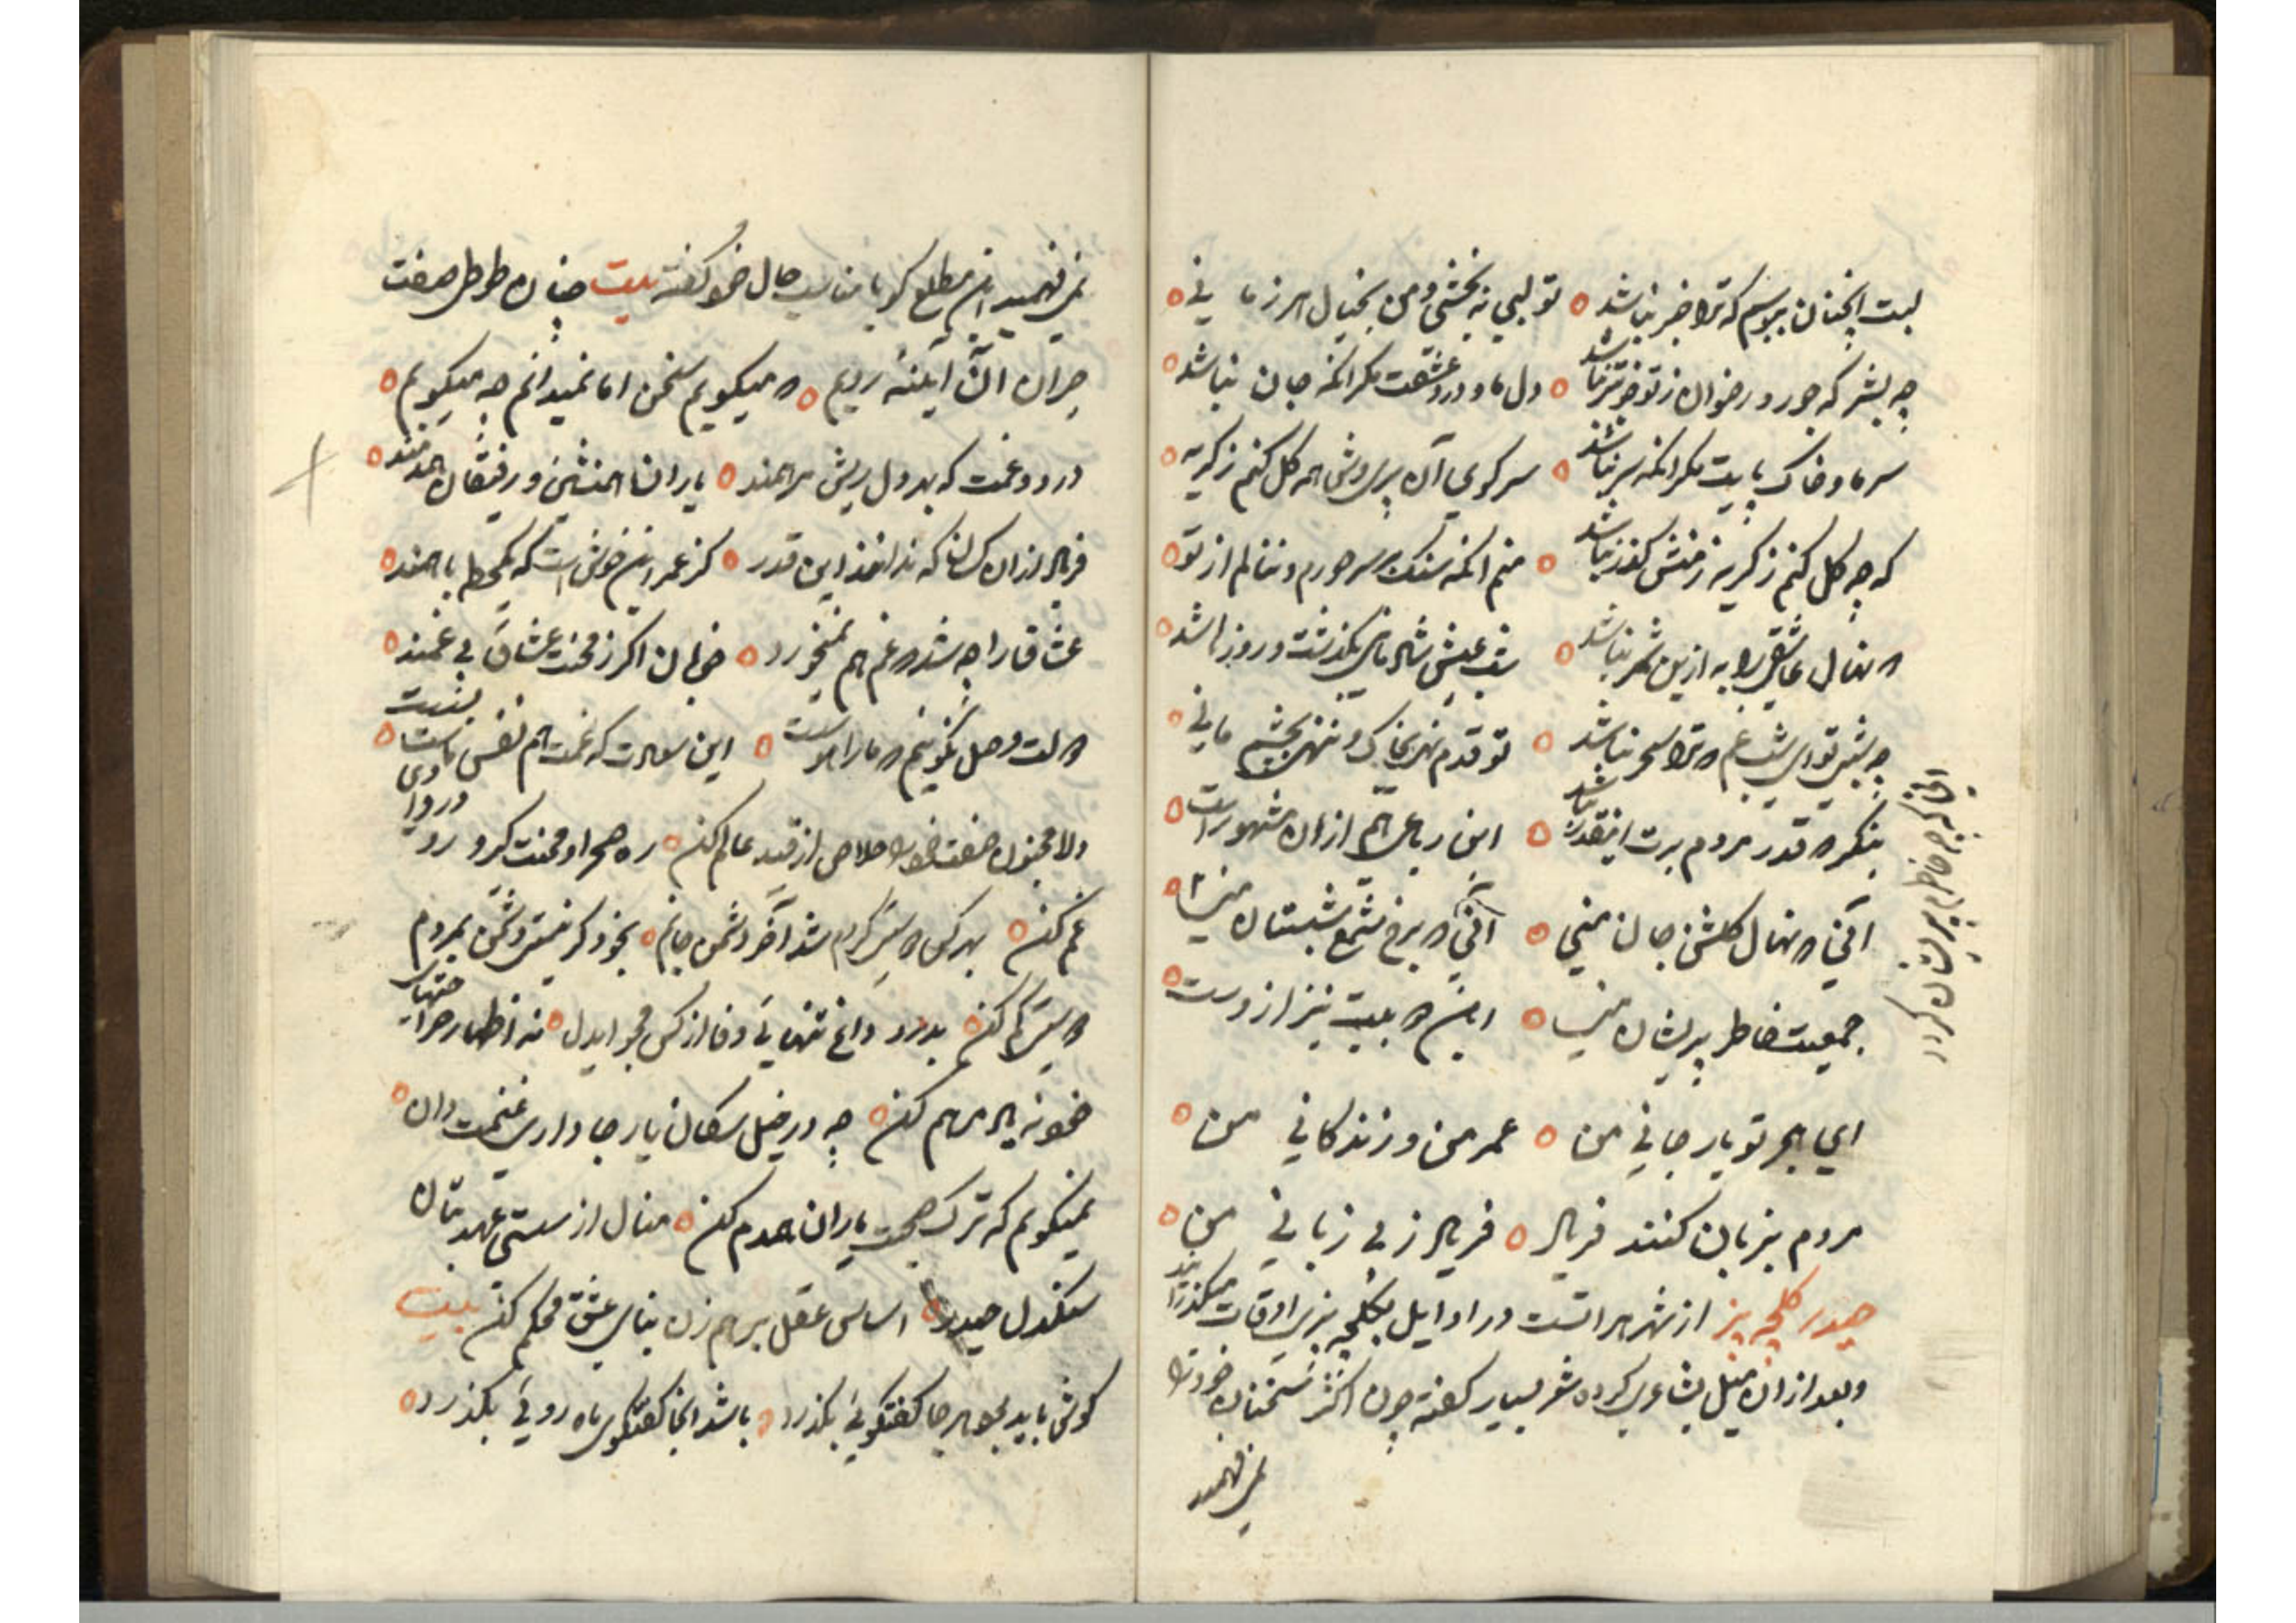 لبت انچنان ببوسم که ترا خبر نباشد ه تو لبی نه بخشی و من بخیال هرزه مانی ه
چه بشر که حور و رضوان ز تو خوبتر نباشد ه دل ما و درد عشقت مگر آنکه جان نباشد ه
سر ما و خاک پایت مگر آنکه سر نباشد ه سر کوی آن پریوش همه گل کنم ز گریه ه
که چه گل کنم ز گریه ز منش گذر نباشد ه منم آنکه سنگ بر سر خورم و ننالم از تو ه
نهال عاشقی را به ازین ثمر نباشد ه شب عیش شاد مانی بگذشت و روز باشد ه
چه شبی تو ای شب غم که ترا سحر نباشد ه تو قدم نهی بخاک و ننهی بچشم مانی ه
بنگر که قدر مردم برت اینقدر نباشد ه این رباعی هم ازان مشهورست ه
آنی که نهال گلشن جان منی ه آنی که برخ شمع شبستان منی ه
جمعیت خاطر پریشان منی ه این بیت نیز ازوست ه
ای هجر تو یار جانی من ه عمر من و زندگانی من ه
مردم بزبان کنند فریاد ه فریاد ز بی زبانی من ه
حیدر کلچه پز از شهر هراتست در اوایل بکلچه پزی اوقات میگذرانید
و بعد ازان میل بشاعری کرده شعر بسیار گفته چون اکثر سخنان خود را
نمی فهمید
نمی فهمید این مطلع گویا مناسب حال خود گفته بیت چنان طوطی صفت
حیران آن آیینه رویم ه که میگویم سخن اما نمیدانم چه میگویم ه
درد و غمت که بر دل ریش مرهمند ه یاران همنشین و رفیقان همدمند ه
فریاد ازان کسان که ندانند این قدر ه کز عمر این خوش است که یکدم با همند ه
عشاق را چه شد که غم هم نمیخورد ه خوبان اگر ز محنت عشاق بی غمند ه
این سعادت که غمت هم نفس ماست بسست ه
دلا مجنون صفت خود را خلاص از قید عالم کن ه ره صحرا و محنت گیرد و رو در وادی
غم کن ه بهر کس که سر گرم شد آخر دشمن جانم ه بخود گر نیستی دشمن بمردم
بدرد داغ تنهایی وفا از کس مجو ایدل ه
چه در خیل سگان یار جا داری غنیمت دان ه
نمیگویم که ترک صحبت یاران همدم کن ه منال از سستی عهد بتان
سنگدل حیدر ه اساس عقل برهم زن بنای عشق محکم کن بیت
گوش باید بود هر جا گفتگویی بگذرد ه باشد آنجا گفتگوی ماه رویی بگذرد ه